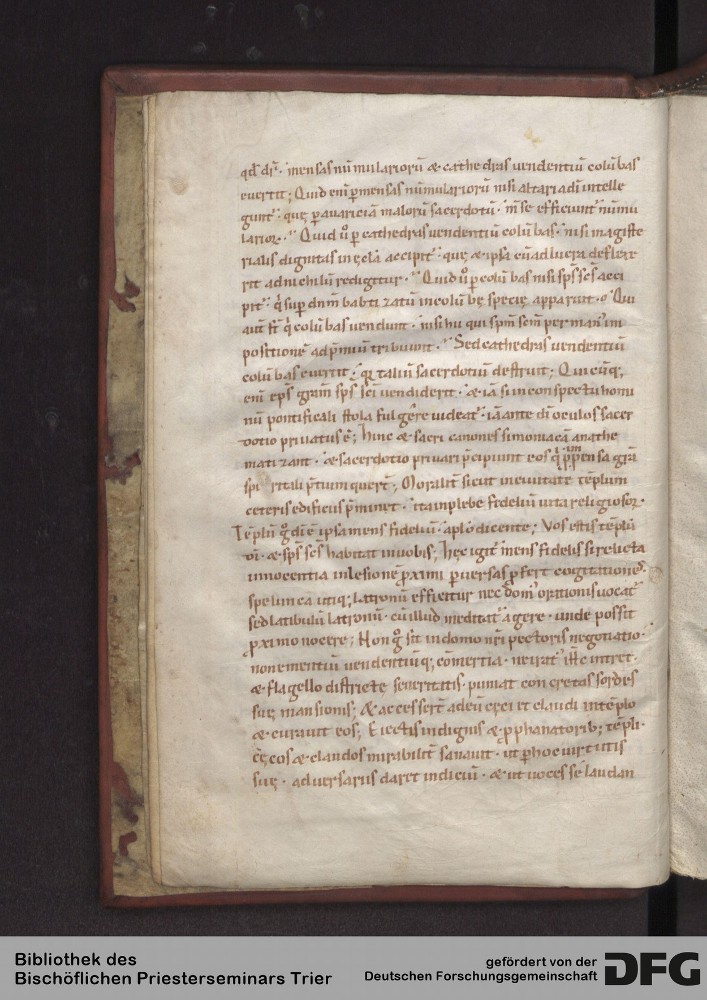 qđ dr̄. mensas nūmulariorū & cathedras vendentiū colūbas
evertit; Quid enī p mensas nūmulariorū nisi altaria dī intelle
gunt᷑. quę p avariciā malorū sacerdotū. in se efficiunt᷑ nūmu
larioꝝ. Quid ů p cathedras vendentiū colūbas. nisi magiste
rialis dignitas in ęcła accipit᷑. quę & ipsa cū ad luera deflexe
rit ad nichilū redigitur. Quid ů p colūbas nisi sp̄s sc̄s acci
pit᷑. q̇ sup dn̄m babtizatū in colūbę specię apparuit. Qui
aūt st̄ q̇ colūbas vendunt. nisi hii qui sp̄m sc̄m per manū im
positionē ad p̄miū tribuunt. Sed cathedras vendentiū
colūbas evertit. qꝛ taliū sacerdotiū destruit; Quicūq;
enī ep̄s gr̄am sp̄s sc̄i vendiderit. & iā si in conspectu homi
nū pontificali stola fulgere videat᷑. iā ante dī oculos sacer
dotio privatus ē; Hinc & sacri canones simoniacā anathe
matizant. & sacerdotio privari p̄cipiunt eos q̇ p pensa grā
spiritali p̄tium quer̄t; Moralit̄ sicut in civitate tēplum
ceteris edificiis p̄minet. ita in plebe fidelium vita religiosoꝝ.
Tēplū g̊ dī ē ipsa mens fideliū. apl̄o dicente; Vos estis tēplū
dī. & sp̄s sc̄s habitat in vobis; hęc igit᷑ mens fidelis si relicta
innocentia in lesionē proximi pversas profert cogitationes.
spelunca utiq; latronū efficitur nec dom᷒ orationis vocat᷑
sed latibulū latronū. cū illud meditat᷑ agere. unde possit
proximo nocere; Non g̊ sit in domo nr̄i pectoris negotiatio.
non ementiū vendentiūq; cōmertia. ne irat᷒ ih̄c intret.
& flagello districte severitatis. puniat concretas sordes
suę mansionis; & accesser̄t ad eū cęci et claudi in tēplo
& curavit eos; Eiectis indignis & prophanatorib; tēpli.
cęcos & claudos mirabilit̄ sanavit. ut p hoc virtutis
suę. adversariis daret indiciū. & ut voces se laudan
Bibliothek des
Bischöflichen Priesterseminars Trier
gefördert von der
Deutschen Forschungsgemeinschaft
DFG